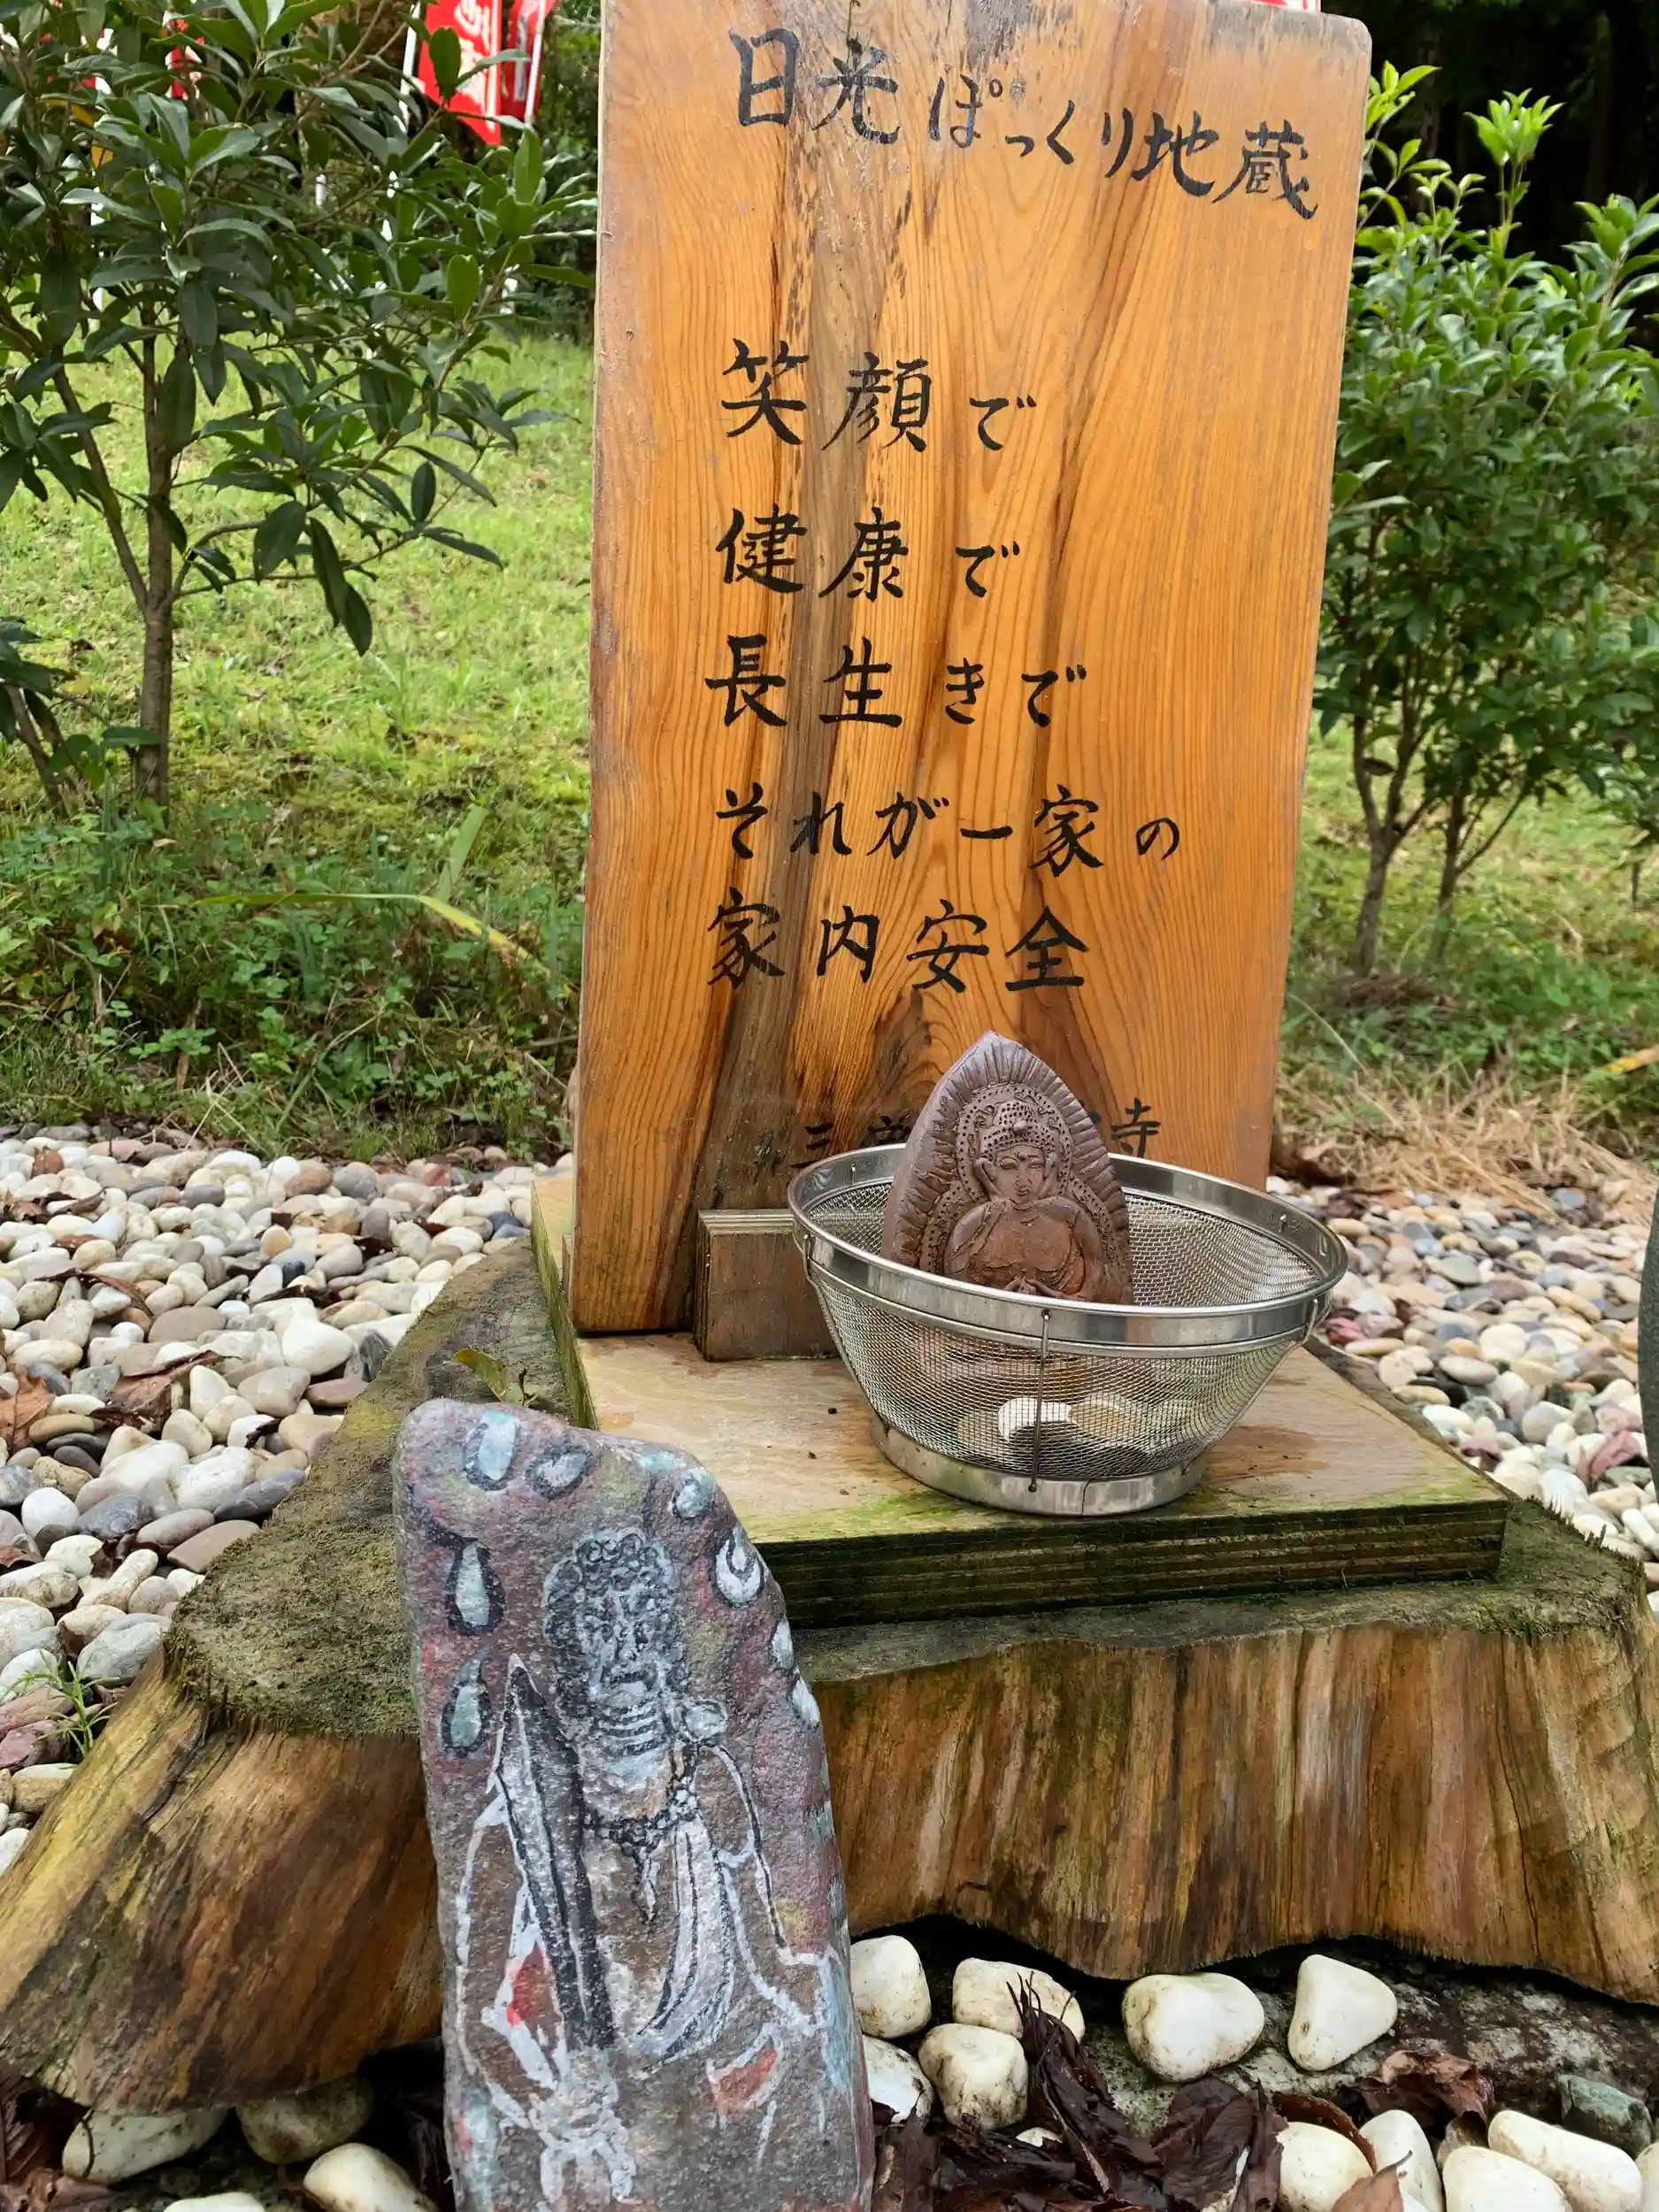 日光ぽっくり地蔵
笑顔で
健康で
長生きで
それが一家の
家内安全
三
寺